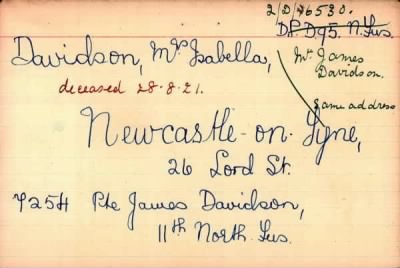 2/D/76530.
D.P. D95. N. Fus.
Davidson, Mrs Isabella,
Mr. James
Davidson.
deceased 28-8-21.
same address
Newcastle-on-Tyne,
26 Lord St.
7254 Pte James Davidson,
11th North. Fus.